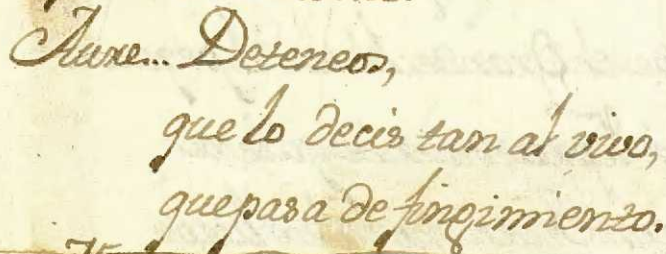 Aure... Deteneos,
que lo decis tan al vivo,
que pasa de fingimiento.